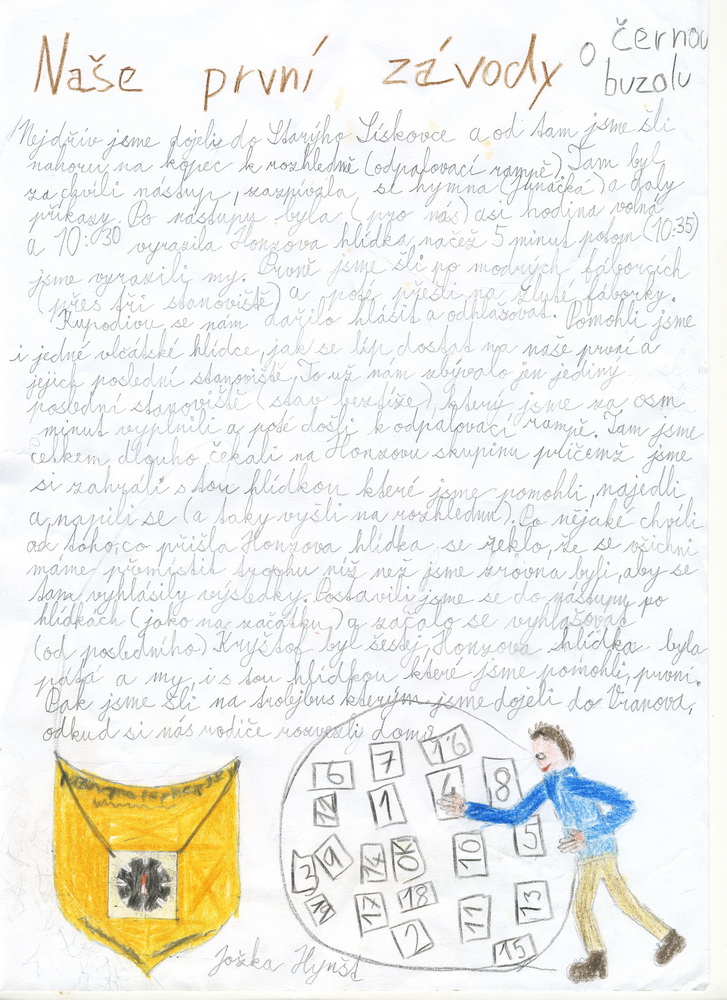 Naše první závody o černou
buzolu
Nejdřív jsme dojeli do Starýho Lískovce a od tam jsme šli
nahoru na kopec k rozhledně (odpalovací rampě). Tam byl
za chvíli nástup, zazpívala se hymna (Junácká) a daly
příkazy. Po nástupu byla (pro nás) asi hodina volna
a 10:30 vyrazila Honzova hlídka, načež 5 minut potom (10:35)
jsme vyrazili my. Prvně jsme šli po modrých fáborcích
(přes tři stanoviště) a poté přešli na žluté fáborky.
Kupodivu se nám dařilo hlásit a odhlašovat. Pomohli jsme
i jedné vlčátské hlídce, jak se líp dostat na naše první a
jejich poslední stanoviště. To už nám zbývalo jen jediny
poslední stanoviště (stav beztíže), který jsme za osm
minut vyplnili a poté došli k odpalovací rampě. Tam jsme
celkem dlouho čekali na Honzovu skupinu přičemž jsme
si zahráli s tou hlídkou které jsme pomohli, najedli
a napili se (a taky vyšli na rozhlednu). Po nějaké chvíli
od toho, co přišla Honzova hlídka, se řeklo, že se všichni
máme přemístit trochu níž než jsme zrovna byli, aby se
tam vyhlásily výsledky. Postavili jsme se do nástupu po
hlídkách (jako na začátku) a začalo se vyhlašovat
(od posledního) Kryštof byl šestej, Honzova hlídka byla
pátá a my, i s tou hlídkou které jsme pomohli, první.
Pak jsme šli na trolejbus kterým jsme dojeli do Vranova,
odkud si nás rodiče rozvezli domů.
6 7 16
12 1 4 8
3 9 14 OK 10 5
19 17 18 11 13
2 15
Jožka Hynšt